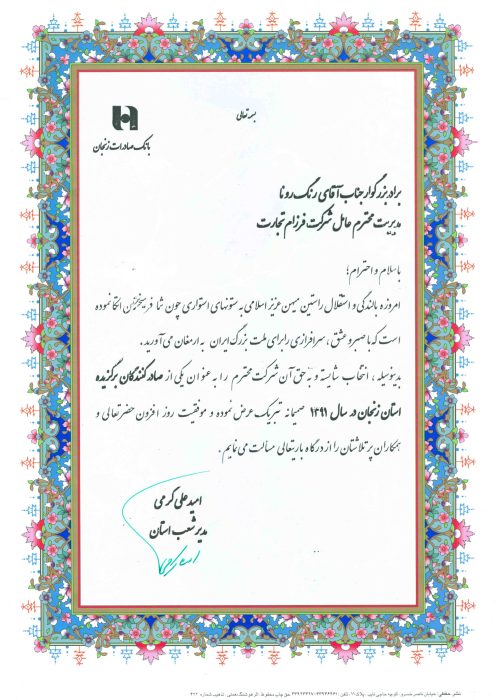 بسمه تعالی
بانک صادرات زنجان
برادر بزرگوار جناب آقای رنگ رونا
مدیریت محترم عامل شرکت فرزام تجارت
باسلام و احترام؛
امروزه بالندگی و استقلال راستین میهن عزیز اسلامی به ستونهای استواری چون شما فریبختگان اتکا نموده
است که با صبر و عشق، سرافرازی را برای ملت بزرگ ایران به ارمغان می آورید.
بدینوسیله، انتخاب شایسته و به حق آن شرکت محترم را به عنوان یکی از صادرکنندگان برگزیده
استان زنجان در سال ۱۳۹۱ صمیمانه تبریک عرض نموده و موفقیت روز افزون حضرتعالی و
همکاران پرتلاشتان را از درگاه باریتعالی مسالت می نمایم.
امید علی کرمی
مدیر شعب استان